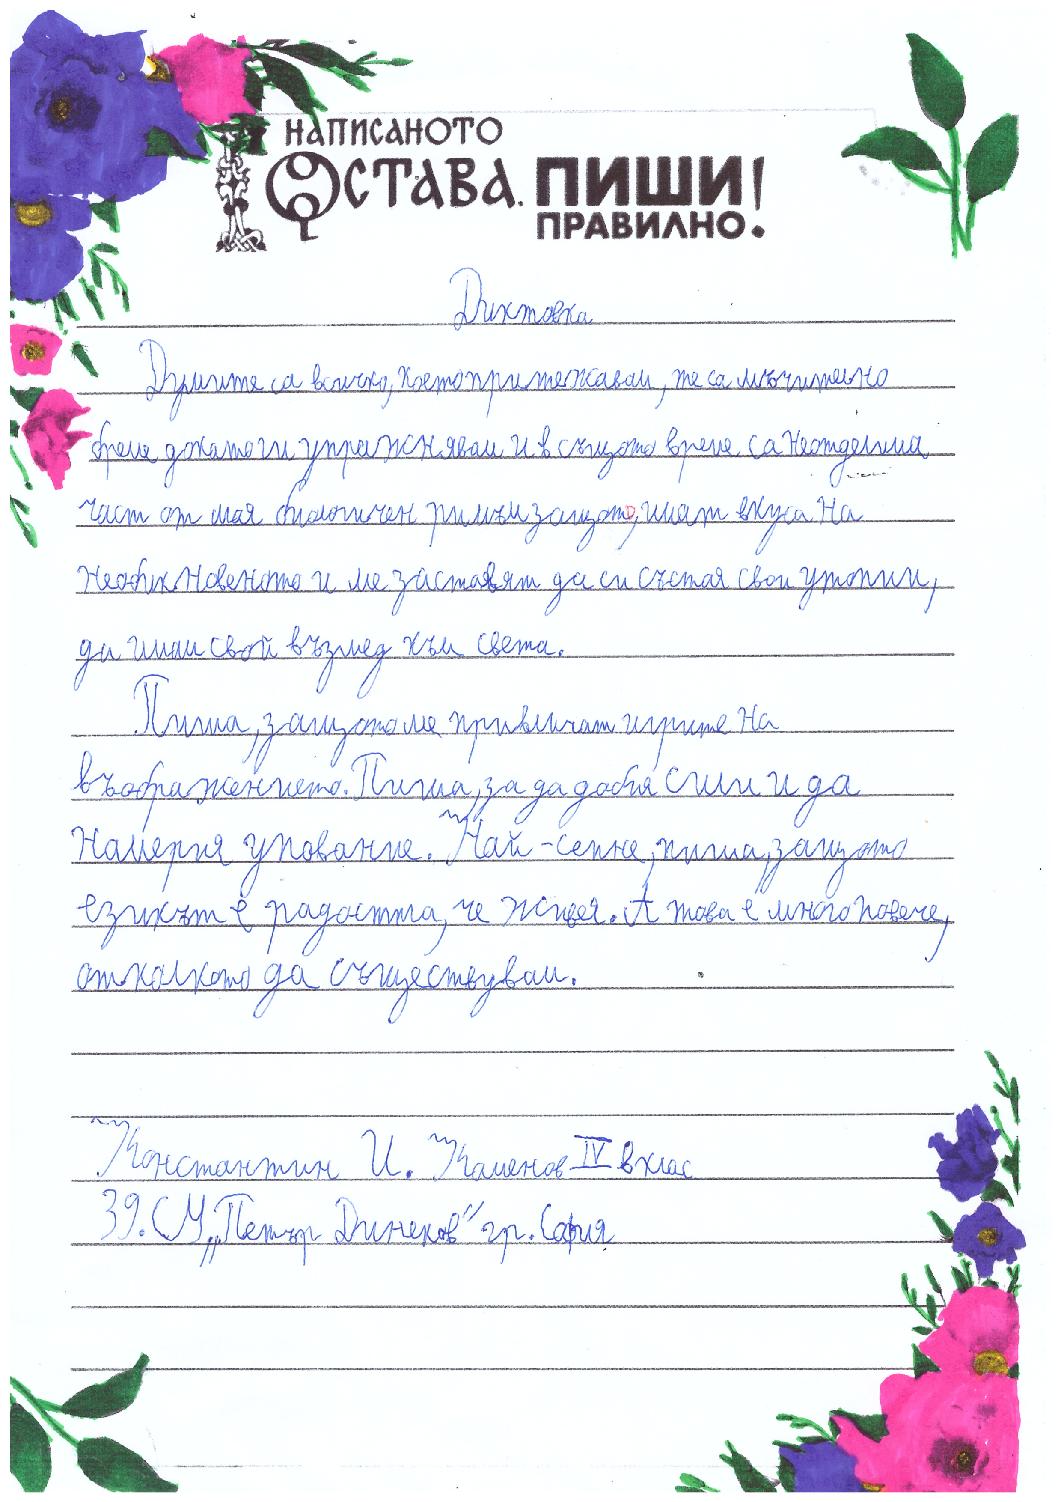 НАПИСАНОТО
ОСТАВА. ПИШИ!
ПРАВИЛНО.
Диктовка
Думите са всичко, което притежавам, те са мъчително
бреме докато ги упражнявам и в същото време са неотделима
част от моя биологичен ритъм защото, имат вкуса на
необикновеното и ме заставят да си състоя свои утопии,
да имам свой възглед към света.
Пиша, защото ме привличат игрите на
въображението. Пиша, за да добия сили и да
намеря упование. Най-сетне, пиша, защото
езикът е радостта, че живея. А това е много повече,
отколкото да съществувам.
Константин И. Каменов IV в клас
39. СУ „Петър Динеков" гр. София